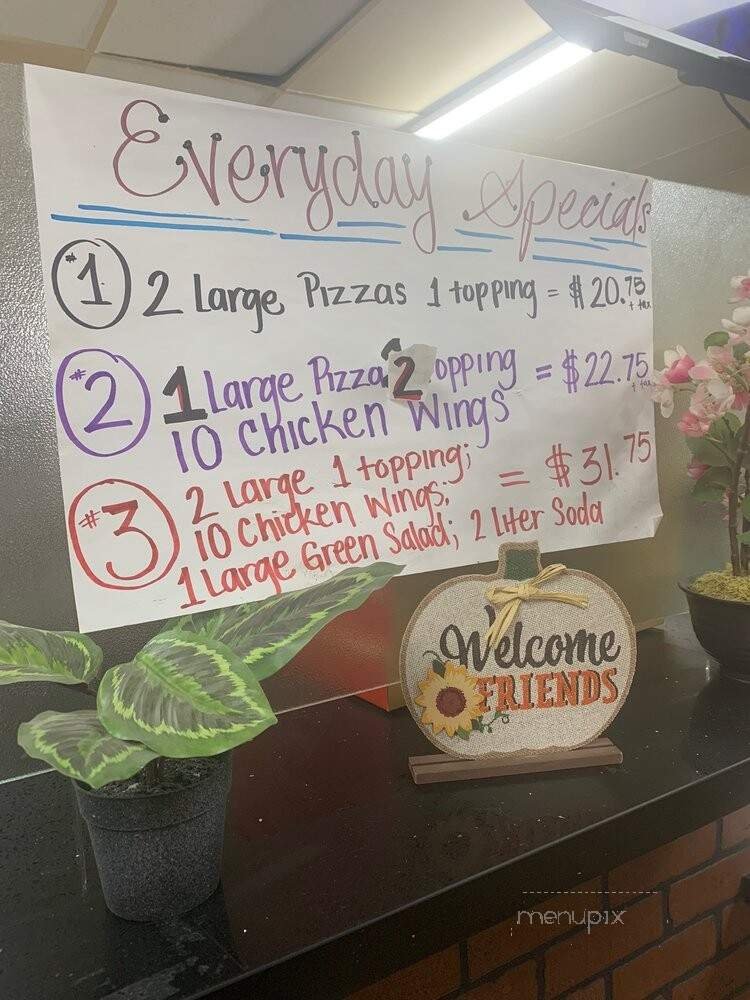 Everyday Specials
#1 2 Large Pizzas 1 topping = $20.75 + tax
#2 1 Large Pizza 2 opping = $22.75 + tax
10 Chicken Wings
#3 2 Large 1 topping; = $31.75
10 Chicken Wings;
1 Large Green Salad; 2 Liter Soda
Welcome
FRIENDS
menupix